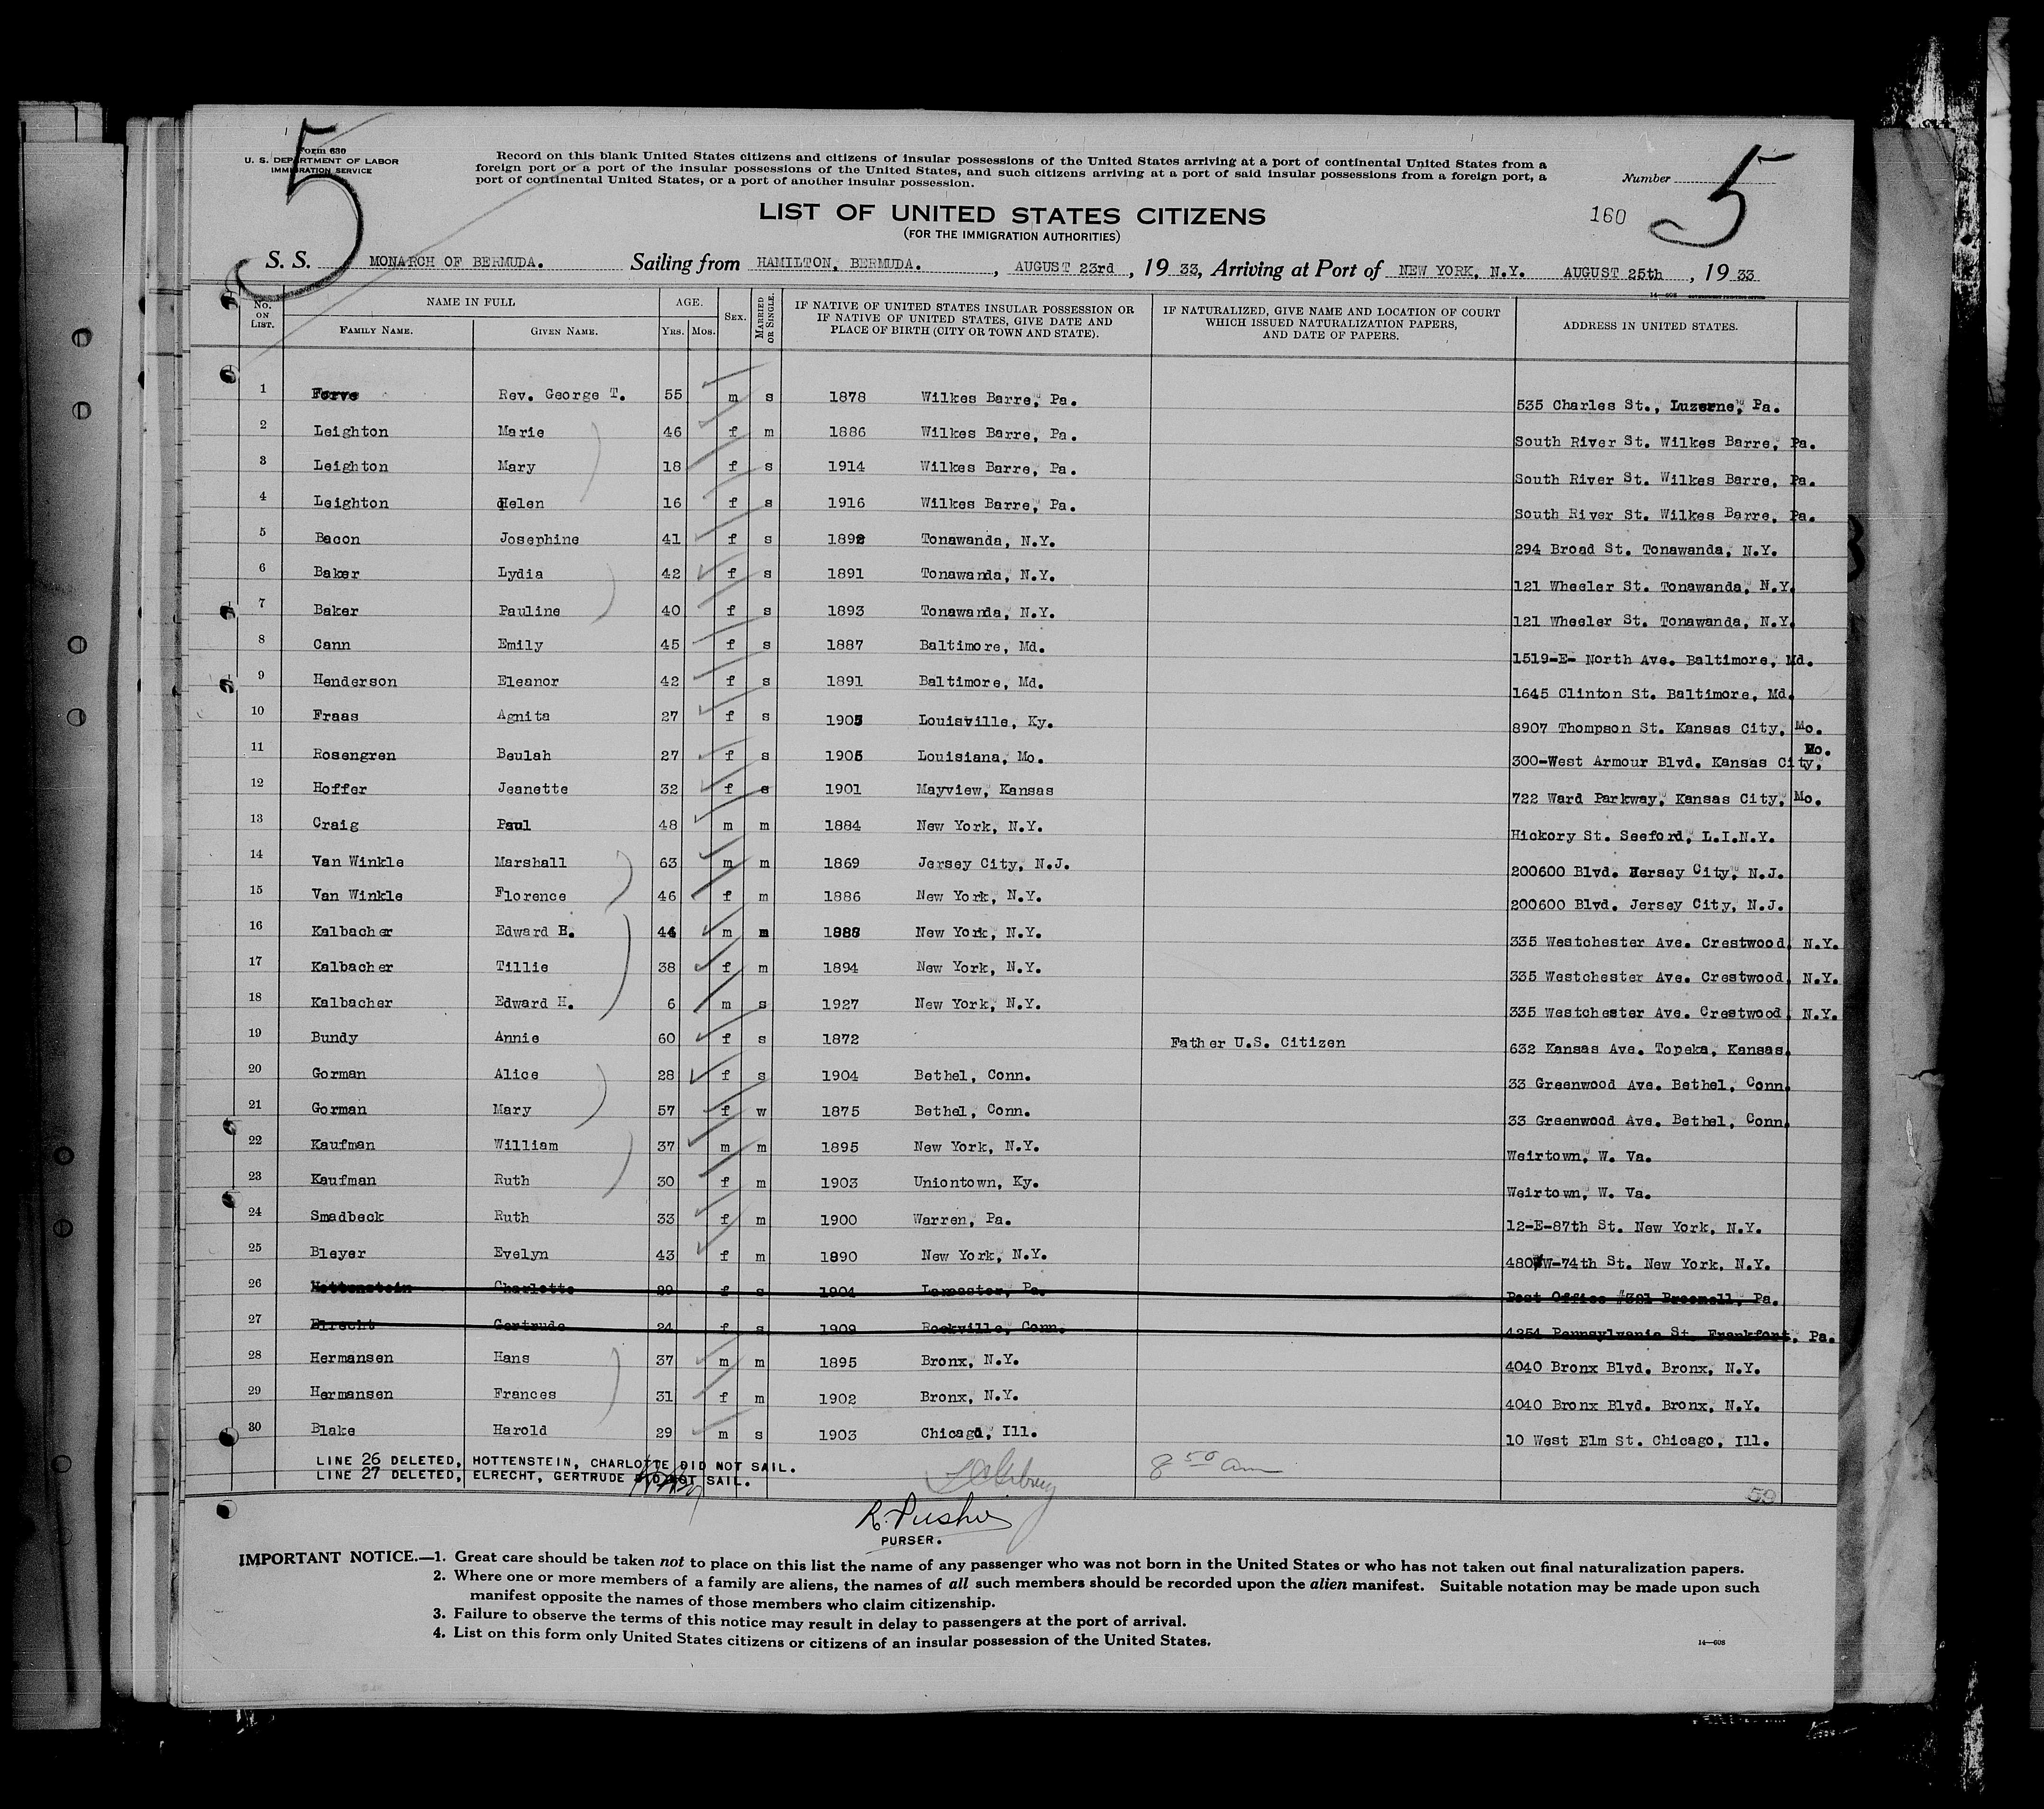 5
Form 630
U. S. DEPARTMENT OF LABOR
IMMIGRATION SERVICE
Record on this blank United States citizens and citizens of insular possessions of the United States arriving at a port of continental United States from a
foreign port or a port of the insular possessions of the United States, and such citizens arriving at a port of said insular possessions from a foreign port, a
port of continental United States, or a port of another insular possession.
Number 5
160
LIST OF UNITED STATES CITIZENS
(FOR THE IMMIGRATION AUTHORITIES)
S. S. MONARCH OF BERMUDA. Sailing from HAMILTON, BERMUDA. , AUGUST 23rd , 19 33, Arriving at Port of NEW YORK, N.Y. AUGUST 25th , 19 33
14—608
No. ON LIST. NAME IN FULL FAMILY NAME. GIVEN NAME. AGE. YRS. MOS. SEX. MARRIED OR SINGLE. IF NATIVE OF UNITED STATES INSULAR POSSESSION OR IF NATIVE OF UNITED STATES, GIVE DATE AND PLACE OF BIRTH (CITY OR TOWN AND STATE). IF NATURALIZED, GIVE NAME AND LOCATION OF COURT WHICH ISSUED NATURALIZATION PAPERS, AND DATE OF PAPERS. ADDRESS IN UNITED STATES.
1 Rev. George T. 55 m s 1878 Wilkes Barre, Pa. 535 Charles St., Luzerne, Pa.
2 Leighton Marie 46 f m 1886 Wilkes Barre, Pa. South River St. Wilkes Barre, Pa.
3 Leighton Mary 18 f s 1914 Wilkes Barre, Pa. South River St. Wilkes Barre, Pa.
4 Leighton Helen 16 f s 1916 Wilkes Barre, Pa. South River St. Wilkes Barre, Pa.
5 Bacon Josephine 41 f s 1892 Tonawanda, N.Y. 294 Broad St. Tonawanda, N.Y.
6 Baker Lydia 42 f s 1891 Tonawanda, N.Y. 121 Wheeler St. Tonawanda, N.Y.
7 Baker Pauline 40 f s 1893 Tonawanda, N.Y. 121 Wheeler St. Tonawanda, N.Y.
8 Cann Emily 45 f s 1887 Baltimore, Md. 1519-E- North Ave. Baltimore, Md.
9 Henderson Eleanor 42 f s 1891 Baltimore, Md. 1645 Clinton St. Baltimore, Md.
10 Fraas Agnita 27 f s 1905 Louisville, Ky. 8907 Thompson St. Kansas City, Mo.
11 Rosengren Beulah 27 f s 1905 Louisiana, Mo. 300-West Armour Blvd. Kansas City, Mo.
12 Hoffer Jeanette 32 f s 1901 Mayview, Kansas 722 Ward Parkway, Kansas City, Mo.
13 Craig Paul 48 m m 1884 New York, N.Y. Hickory St. Seeford, L.I.N.Y.
14 Van Winkle Marshall 63 m m 1869 Jersey City, N.J. 200600 Blvd. Jersey City, N.J.
15 Van Winkle Florence 46 f m 1886 New York, N.Y. 200600 Blvd. Jersey City, N.J.
16 Kalbacher Edward H. 44 m m New York, N.Y. 335 Westchester Ave. Crestwood, N.Y.
17 Kalbacher Tillie 38 f m 1894 New York, N.Y. 335 Westchester Ave. Crestwood, N.Y.
18 Kalbacher Edward H. 6 m s 1927 New York, N.Y. 335 Westchester Ave. Crestwood, N.Y.
19 Bundy Annie 60 f s 1872 Father U.S. Citizen 632 Kansas Ave. Topeka, Kansas.
20 Gorman Alice 28 f s 1904 Bethel, Conn. 33 Greenwood Ave. Bethel, Conn.
21 Gorman Mary 57 f w 1875 Bethel, Conn. 33 Greenwood Ave. Bethel, Conn.
22 Kaufman William 37 m m 1895 New York, N.Y. Weirtown, W. Va.
23 Kaufman Ruth 30 f m 1903 Uniontown, Ky. Weirtown, W. Va.
24 Smadbeck Ruth 33 f m 1900 Warren, Pa. 12-E-87th St. New York, N.Y.
25 Bleyer Evelyn 43 f m 1890 New York, N.Y. 480 W-74th St. New York, N.Y.
26 Hottenstein Charlotte 29 f s 1904 Lancaster, Pa. Post Office #381 Broomall, Pa.
27 Elrecht Gertrude 24 f s 1909 Rockville, Conn. 4254 Pennsylvania St. Frankfort, Pa.
28 Hermansen Hans 37 m m 1895 Bronx, N.Y. 4040 Bronx Blvd. Bronx, N.Y.
29 Hermansen Frances 31 f m 1902 Bronx, N.Y. 4040 Bronx Blvd. Bronx, N.Y.
30 Blake Harold 29 m s 1903 Chicago, Ill. 10 West Elm St. Chicago, Ill.
LINE 26 DELETED, HOTTENSTEIN, CHARLOTTE DID NOT SAIL.
LINE 27 DELETED, ELRECHT, GERTRUDE DID NOT SAIL.
8 50 am
59
PURSER.
IMPORTANT NOTICE.—1. Great care should be taken not to place on this list the name of any passenger who was not born in the United States or who has not taken out final naturalization papers.
2. Where one or more members of a family are aliens, the names of all such members should be recorded upon the alien manifest. Suitable notation may be made upon such
manifest opposite the names of those members who claim citizenship.
3. Failure to observe the terms of this notice may result in delay to passengers at the port of arrival.
4. List on this form only United States citizens or citizens of an insular possession of the United States.
14—608